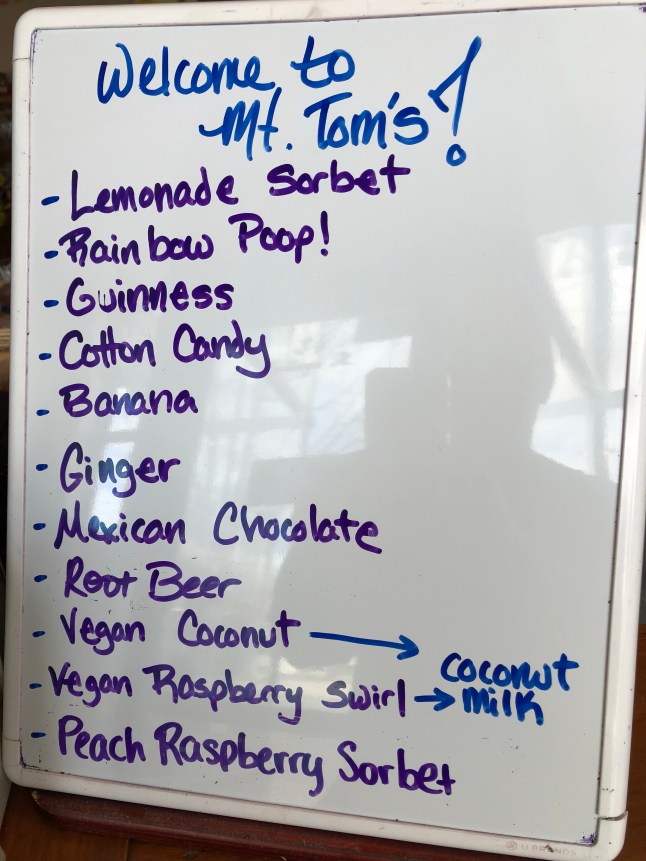 Welcome to
Mt. Tom's!
- Lemonade Sorbet
- Rainbow Poop!
- Guinness
- Cotton Candy
- Banana
- Ginger
- Mexican Chocolate
- Root Beer
- Vegan Coconut →
- Vegan Raspberry Swirl → coconut milk
- Peach Raspberry Sorbet
U BRANDS